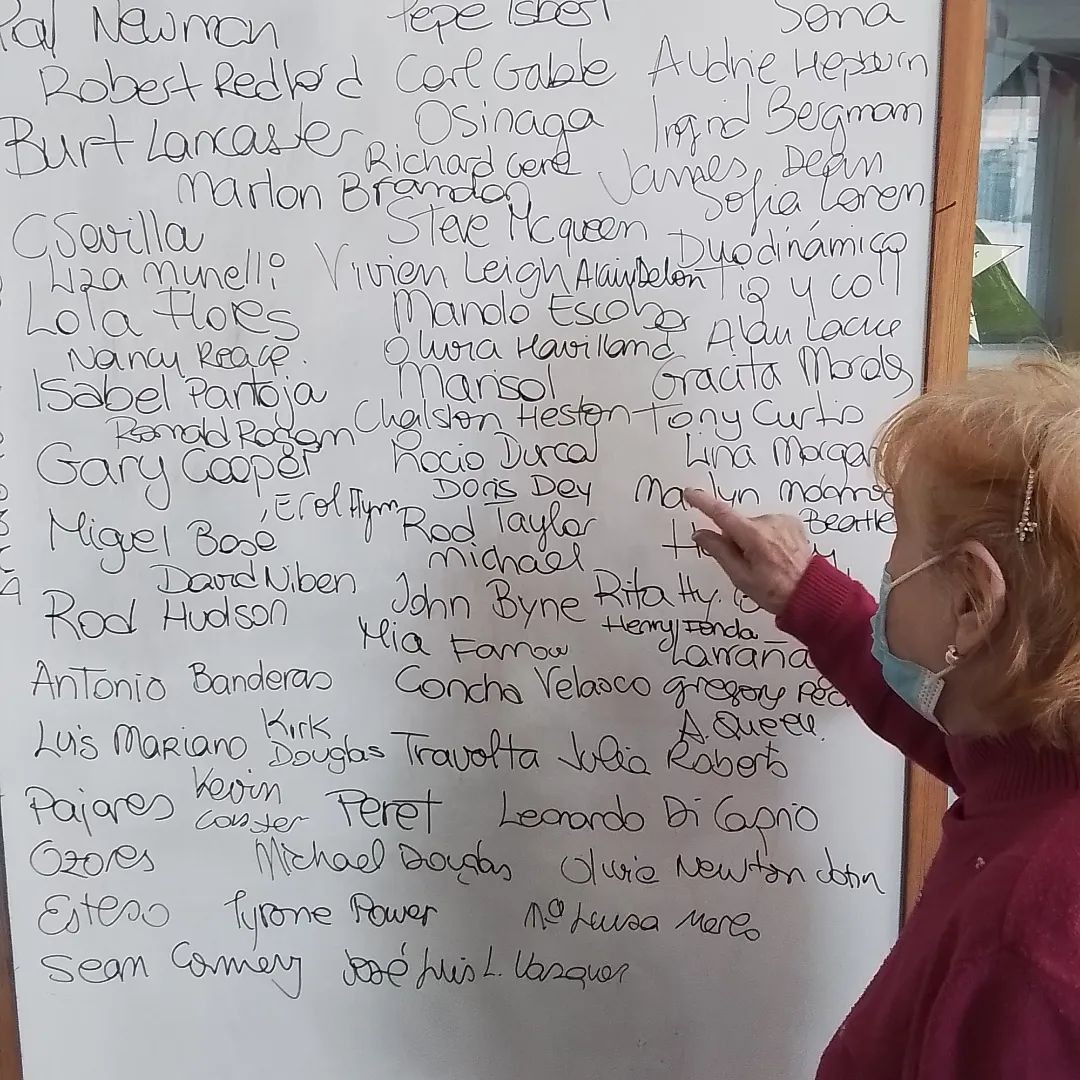 Pal Newman Pepe Isbert Sona
Robert Redford Carl Gable Audrie Hepburn
Burt Lancaster Osinaga Ingrid Bergman
Richard Gere James Dean
Marlon Brandon Sofia Loren
C Sevilla Steve Mcqueen Duo dinámico
Liza Munelli Vivien Leigh Alain Delon Tip y coll
Lola Flores Manolo Escobar
Nancy Olivia Havilland Alan
Isabel Pantoja Marisol Gracita Morals
Ronald Rogam Chalston Heston Tony Curtis
Gary Cooper Rocio Durcal Lina Morgan
Erol Flynn Doris Dey
Miguel Bosé Rod Taylor Beatle
Michael
David Niben John Byne Rita Hy.
Rod Hudson Mia Farrow Henry Fonda
Larraña
Antonio Banderas Concha Velasco gregory Pec
A. Queen.
Luis Mariano Kirk Douglas Travolta Julia Roberts
Pajares Kevin Coster Peret Leonardo Di Caprio
Ozores Michael Douglas Olivia Newton John
Esteso Tyrone Power Mª Luisa Merlo
Sean Connery José Luis L. Vazquez